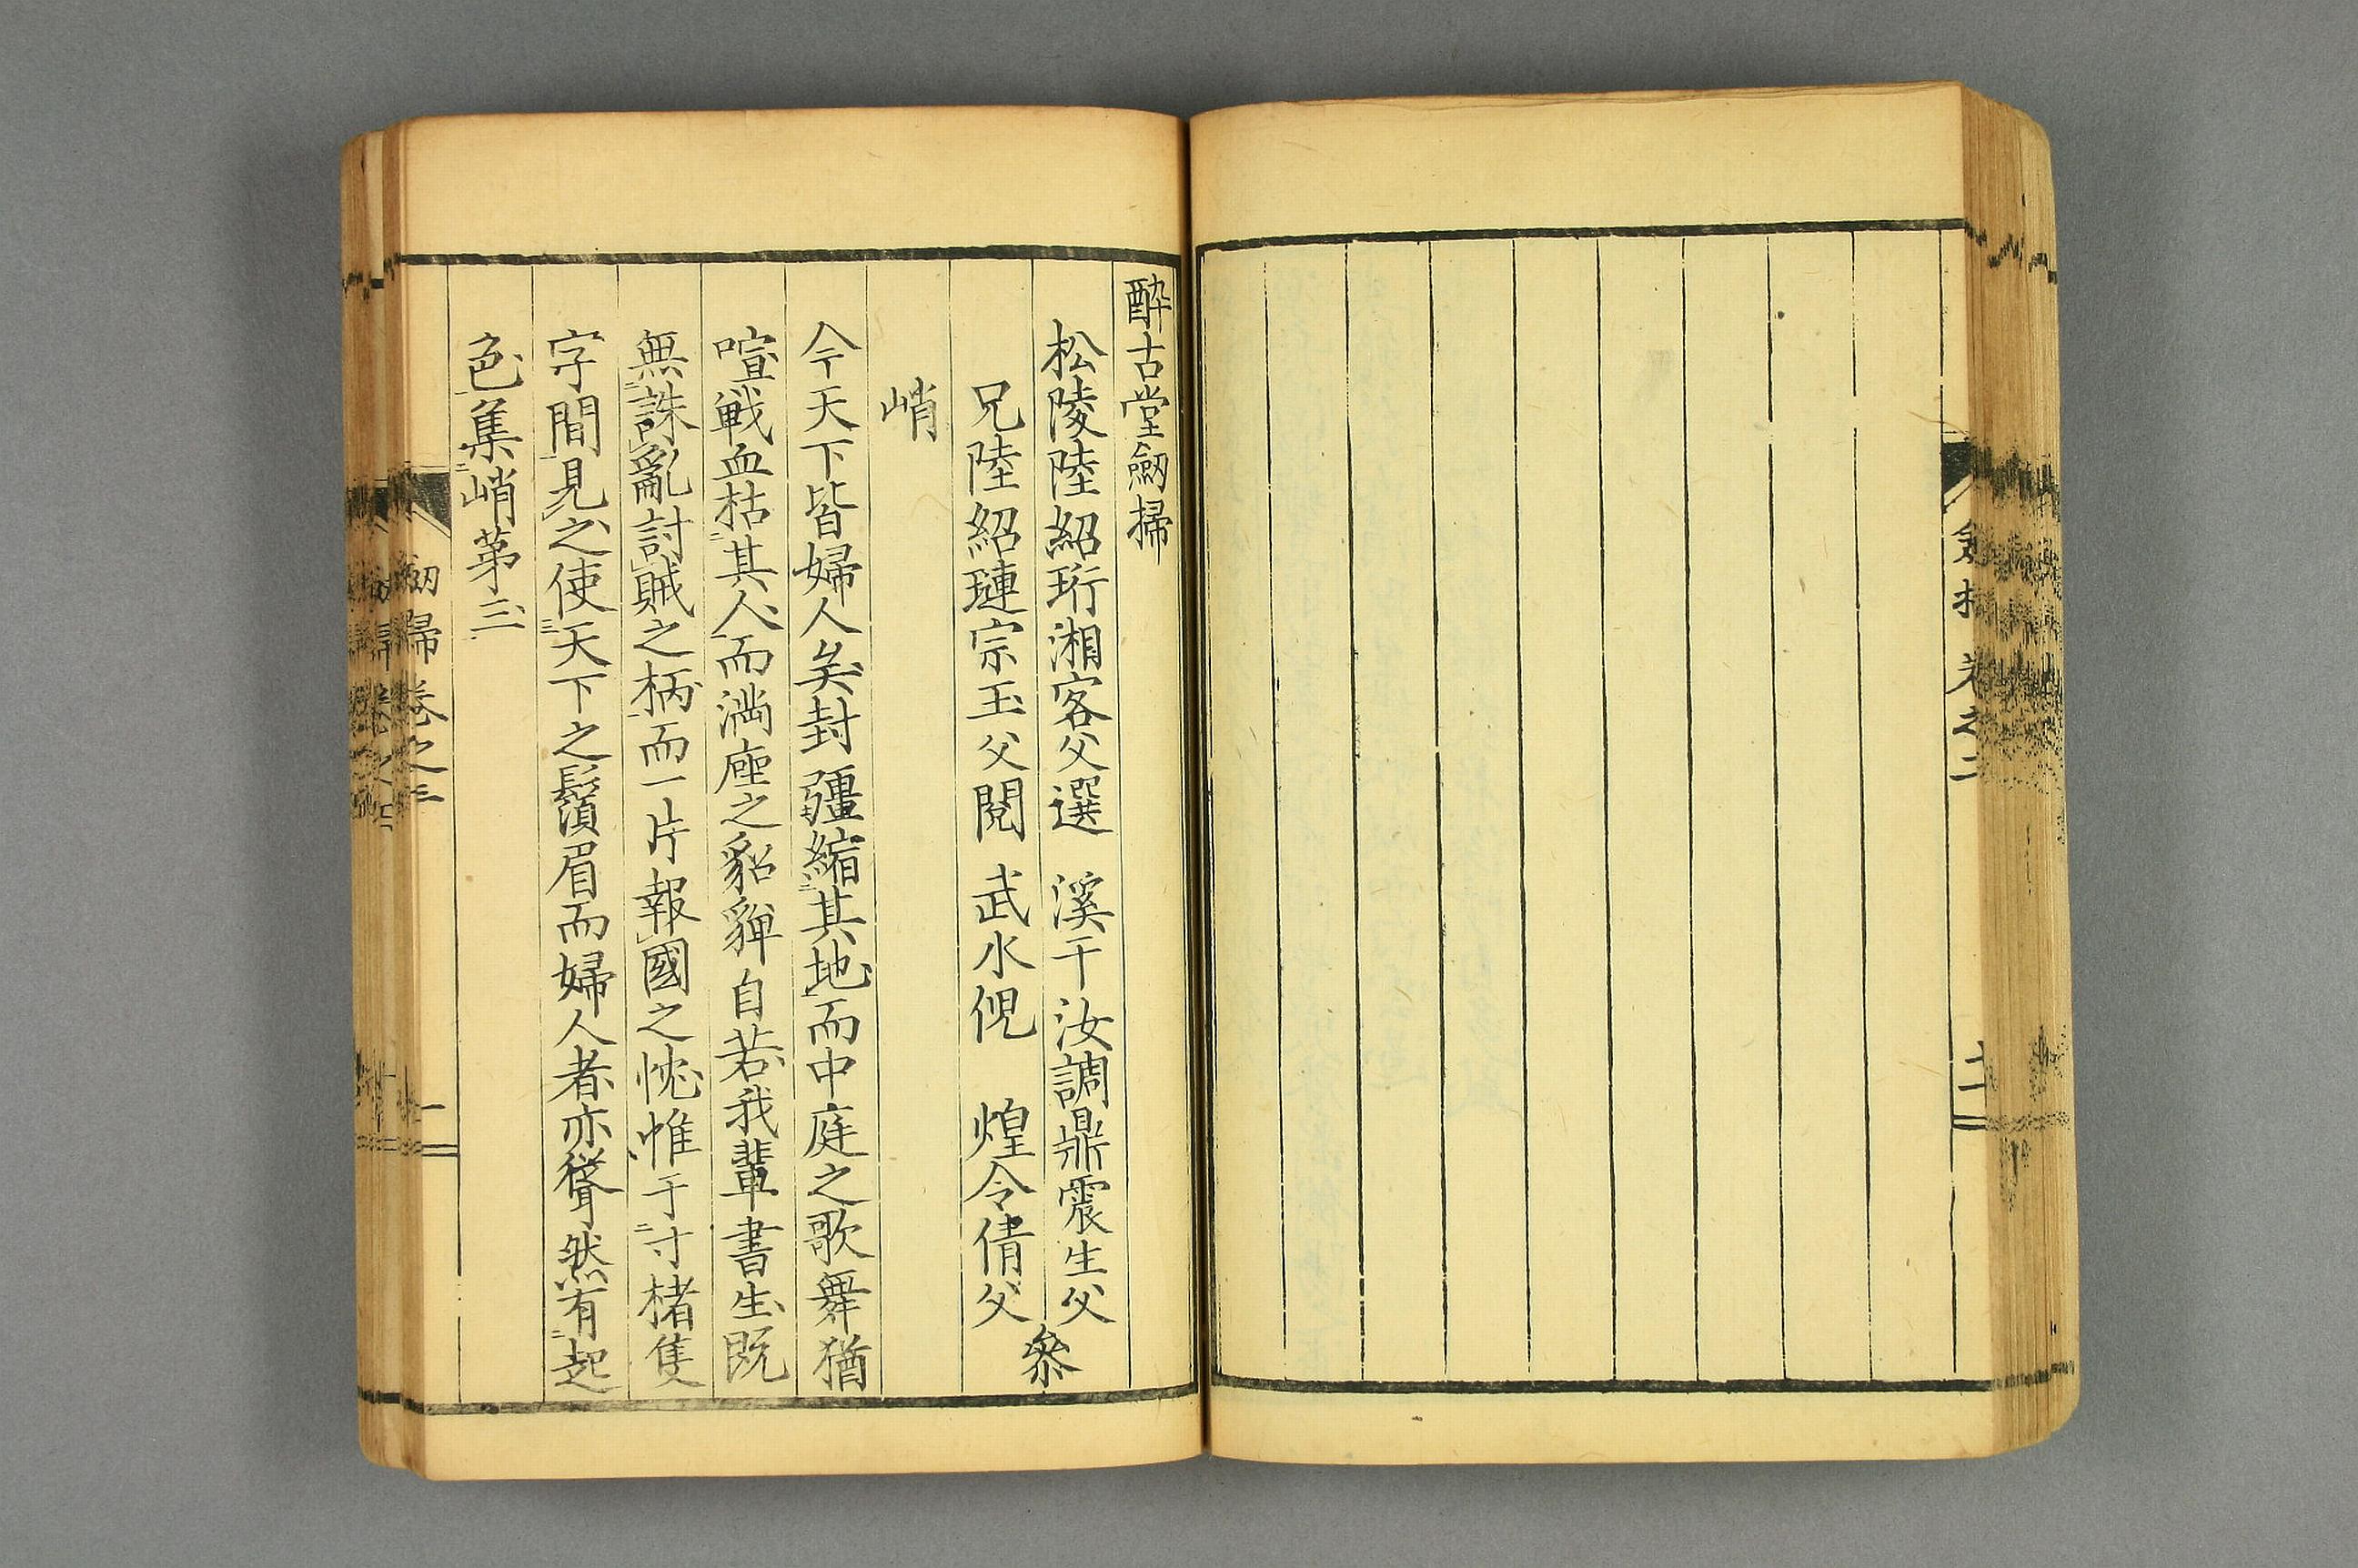 酔古堂劔掃
松陵陸紹珩湘客父選　溪干汝調鼎震生父
兄陸紹璉宗玉父閲　武水倪　煌令倩父
叅
峭
今天下皆婦人矣封疆縮其地而中庭之歌舞猶
喧戰血枯其人而滿座之貂貚自若我輩書生既
無誅亂討賊之柄而一片報國之忱惟于寸楮隻
字間見之使天下之鬚眉而婦人者亦聳然有起
色集峭第三
劔掃　卷之三
一